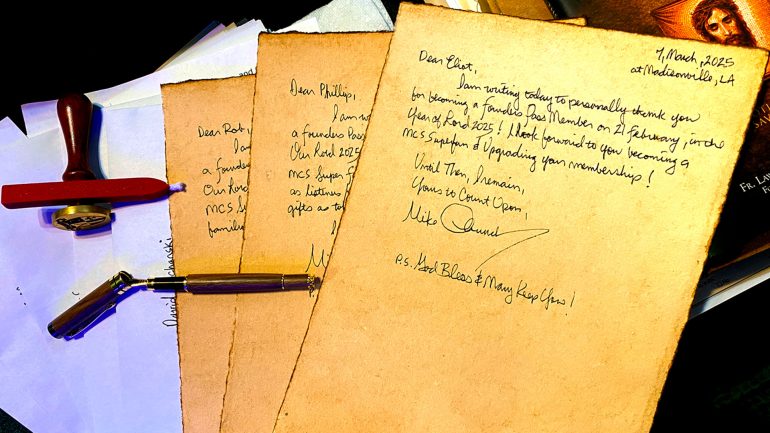 Dear Rob,
I am
a founde
Our Lord
MCS Su
familie
Dear Phillip,
I am w
a founders Pass
Our Lord 2025
MCS Super F
as listeners
gifts as to
Mi
7, March, 2025
at Madisonville, LA
Dear Eliot,
I am writing today to personally thank you
for becoming a founders Pass Member on 21 February, in the
Year of Lord 2025! I look forward to you becoming a
MCS Superfan & Upgrading your membership!
Until Then, I remain,
Yours to Count Upon,
Mike
P.S. God Bless & Mary Keep You!
David
FR. LA